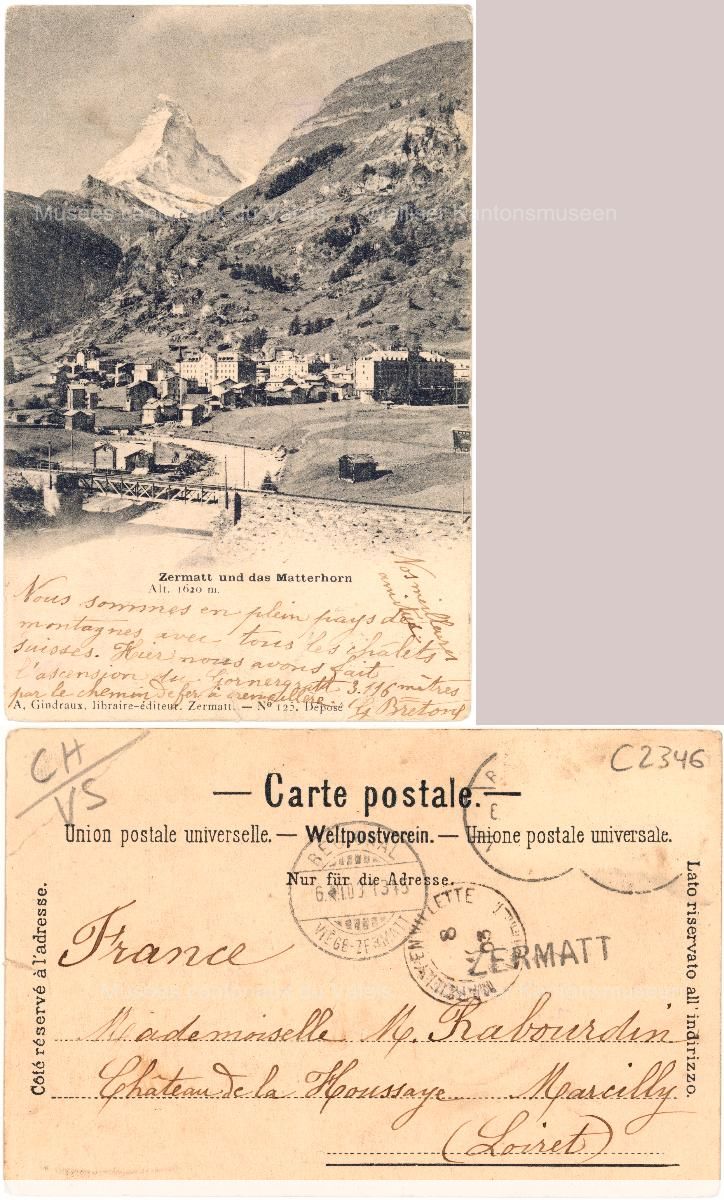 Musées cantonaux du Valais Walliser Kantonsmuseen
Zermatt und das Matterhorn
Alt. 1620 m.
Nos meilleures
amitiés
Nous sommes en plein pays de
montagnes avec tous les chalets
suisses. Hier nous avons fait
l'ascension du Gornergratt 3.136 mètres
par le chemin de fer à crémaillère.
G Breton
A. Gindraux, libraire-éditeur. Zermatt. — Nº 125. Déposé
CH
VS
C2346
— Carte postale. —
Union postale universelle. — Weltpostverein. — Unione postale universale.
Nur für die Adresse.
Côté réservé à l'adresse.
Lato riservato all' indirizzo.
VIÈGE-ZERMATT
MARCILLY-EN-VILLETTE
8
03
ZERMATT
France
Musées cantonaux du Valais Walliser Kantonsmuseen
Mademoiselle M. Rabourdin
Château de la Houssaye Marcilly
(Loiret)